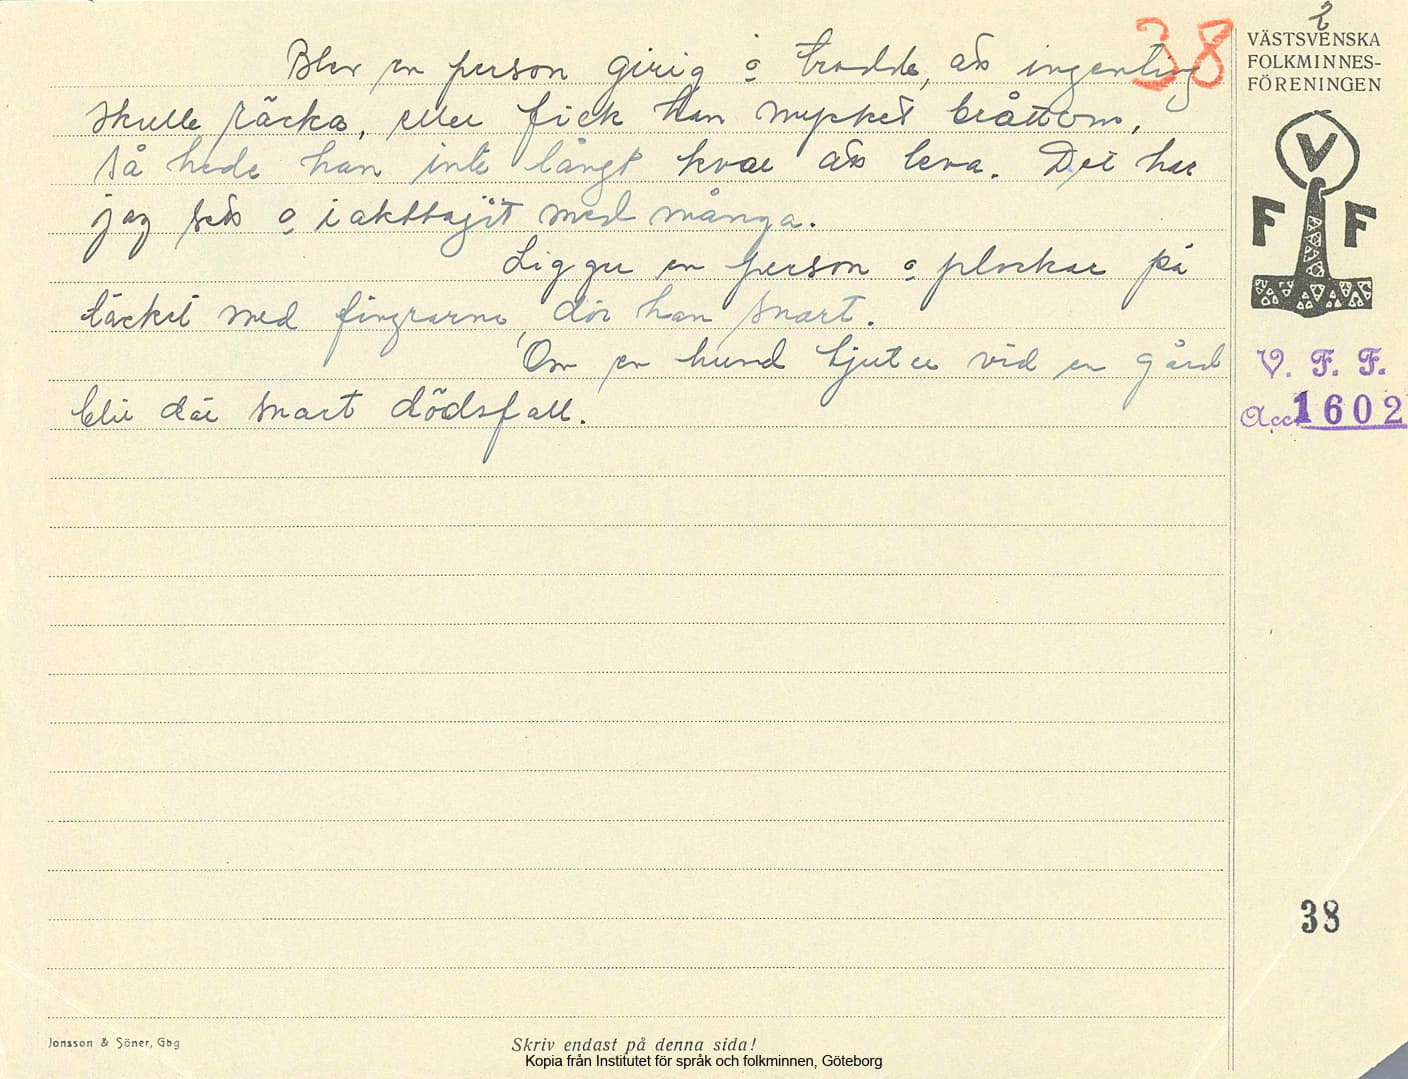 2
38
VÄSTSVENSKA
FOLKMINNES-
FÖRENINGEN
V
F F
V. F. F.
Acc. 1602
Blev en person girig o trodde, att ingenting
skulle räcka, eller fick han mycket bråttom,
så hade han inte långt kvar att leva. Det har
jag sett o iakttagit med många.
Ligger en person o plockar på
täcket med fingrarna, dör han snart.
Om en hund tjuter vid en gård
blir där snart dödsfall.
38
Jonsson & Söner, Gbg
Skriv endast på denna sida!
Kopia från Institutet för språk och folkminnen, Göteborg